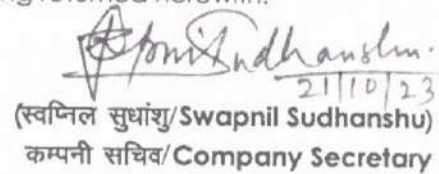 Sudhanshu.
21/10/23
(स्वप्निल सुधांशु/Swapnil Sudhanshu)
कम्पनी सचिव/Company Secretary